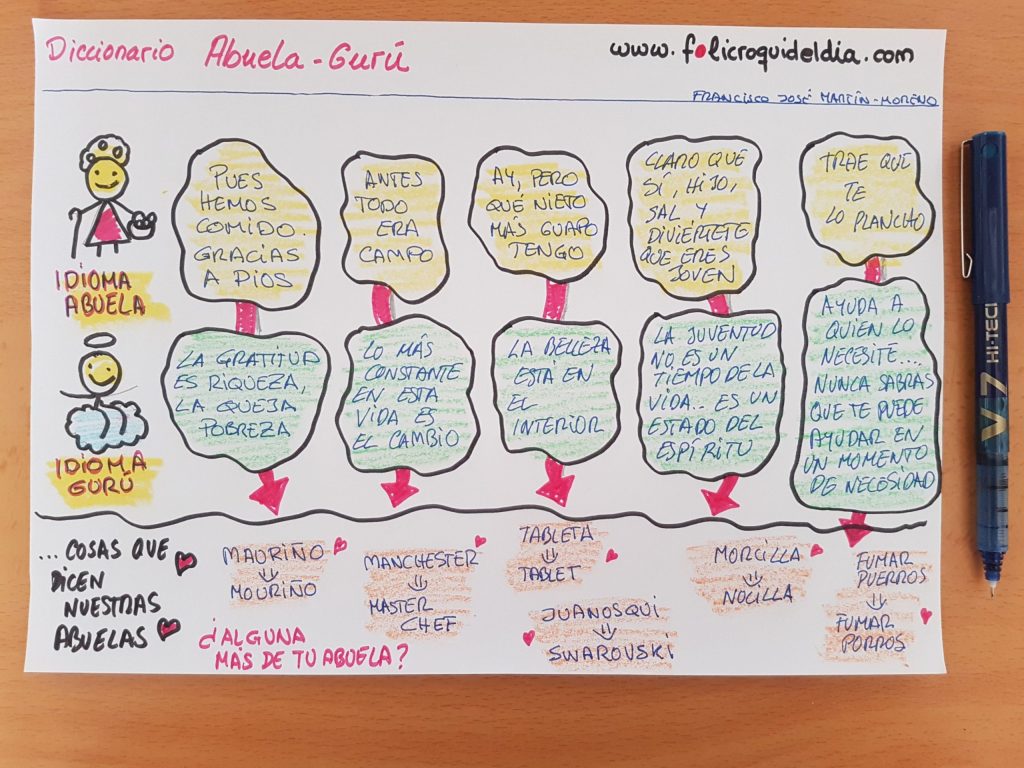 Diccionario Abuela-Gurú
www.folicroquideldia.com
FRANCISCO JOSÉ MARTÍN-MORENO
IDIOMA
ABUELA
PUES
HEMOS
COMIDO.
GRACIAS
A DIOS
ANTES
TODO
ERA
CAMPO
AY, PERO
QUÉ NIETO
MÁS GUAPO
TENGO
CLARO QUE
SÍ, HIJO,
SAL Y
DIVIÉRTETE
QUE ERES
JOVEN
TRAE QUE
TE
LO PLANCHO
IDIOMA
GURÚ
LA GRATITUD
ES RIQUEZA,
LA QUEJA
POBREZA
LO MÁS
CONSTANTE
EN ESTA
VIDA ES
EL CAMBIO
LA BELLEZA
ESTA EN
EL
INTERIOR
LA JUVENTUD
NO ES UN
TIEMPO DE LA
VIDA.. ES UN
ESTADO DEL
ESPÍRITU
AYUDA A
QUIEN LO
NECESITE...
NUNCA SABRAS
QUE TE PUEDE
AYUDAR EN
UN MOMENTO
DE NECESIDAD
...COSAS QUE
DICEN
NUESTRAS
ABUELAS
MAURIÑO
MOURIÑO
MANCHESTER
MASTER
CHEF
TABLETA
TABLET
JUANOSQUI
SWAROVSKI
MORCILLA
NOCILLA
FUMAR
PUERROS
FUMAR
PORROS
¿ALGUNA
MÁS DE TU ABUELA?
V7 HI-TECP